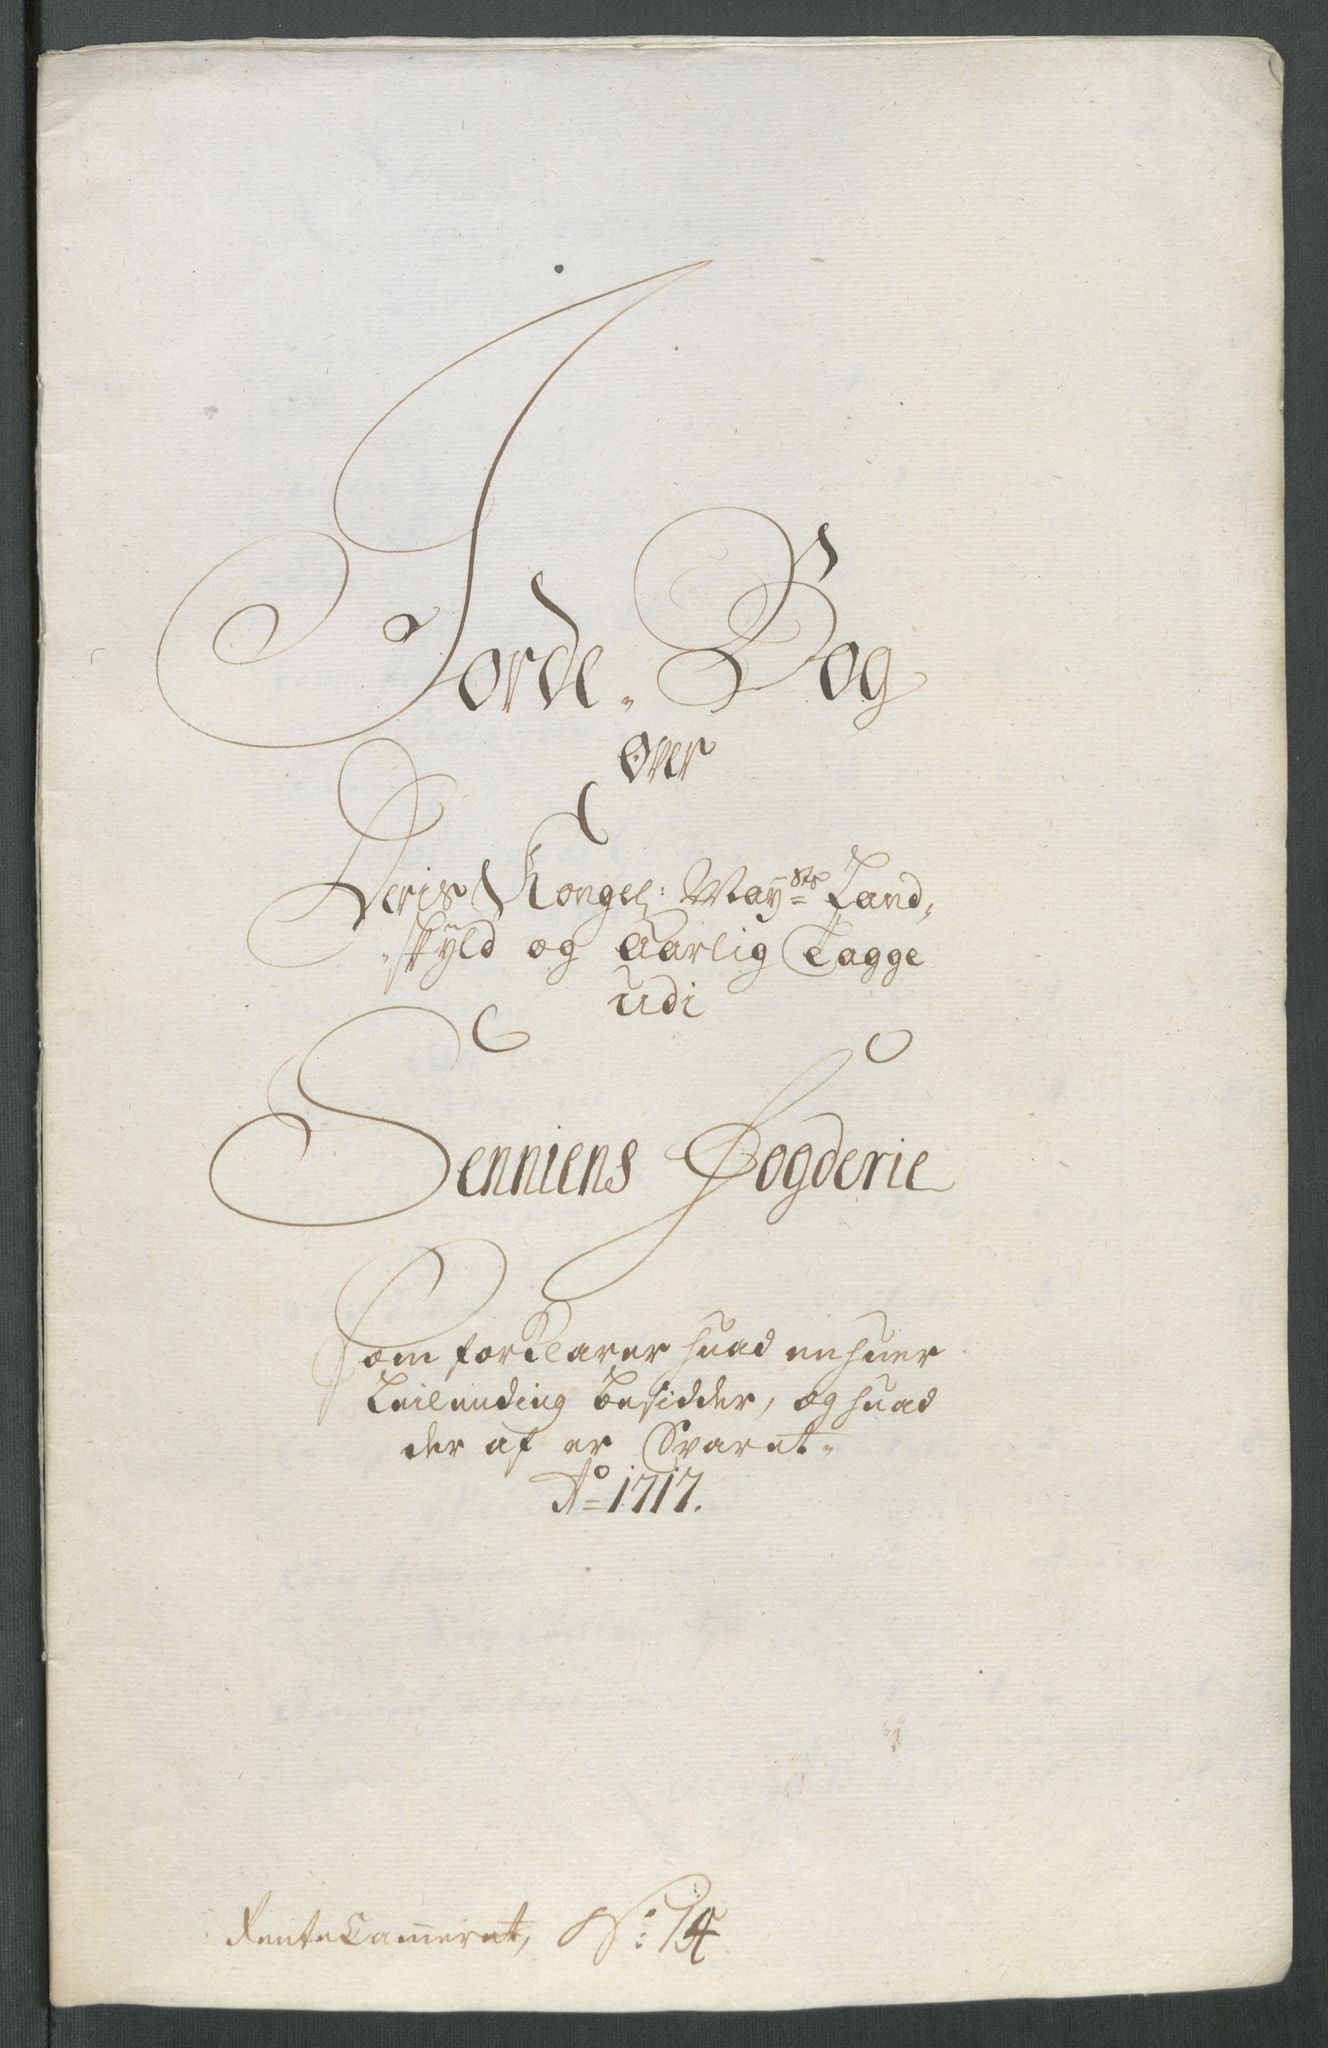 Jorde-Bog
over
Deris Kongel: Mayst⁠s Land-
-skyld og Aarlig Tagge
udi
Senniens Fogderie
Som forklarer huad enhuer
Leilending besidder, og huad
der af er Svaret-
Ao 1717.
RenteCammeret, No: 14